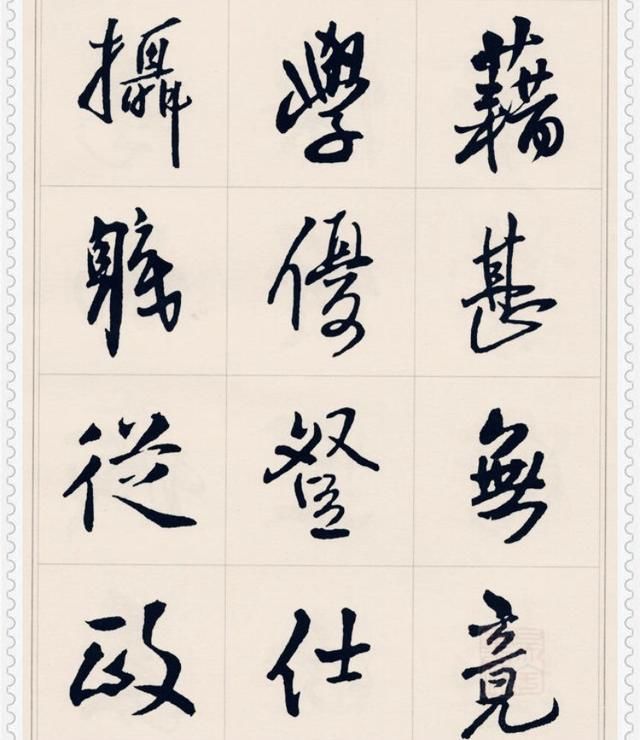 藉甚無竟
學優登仕
攝職從政